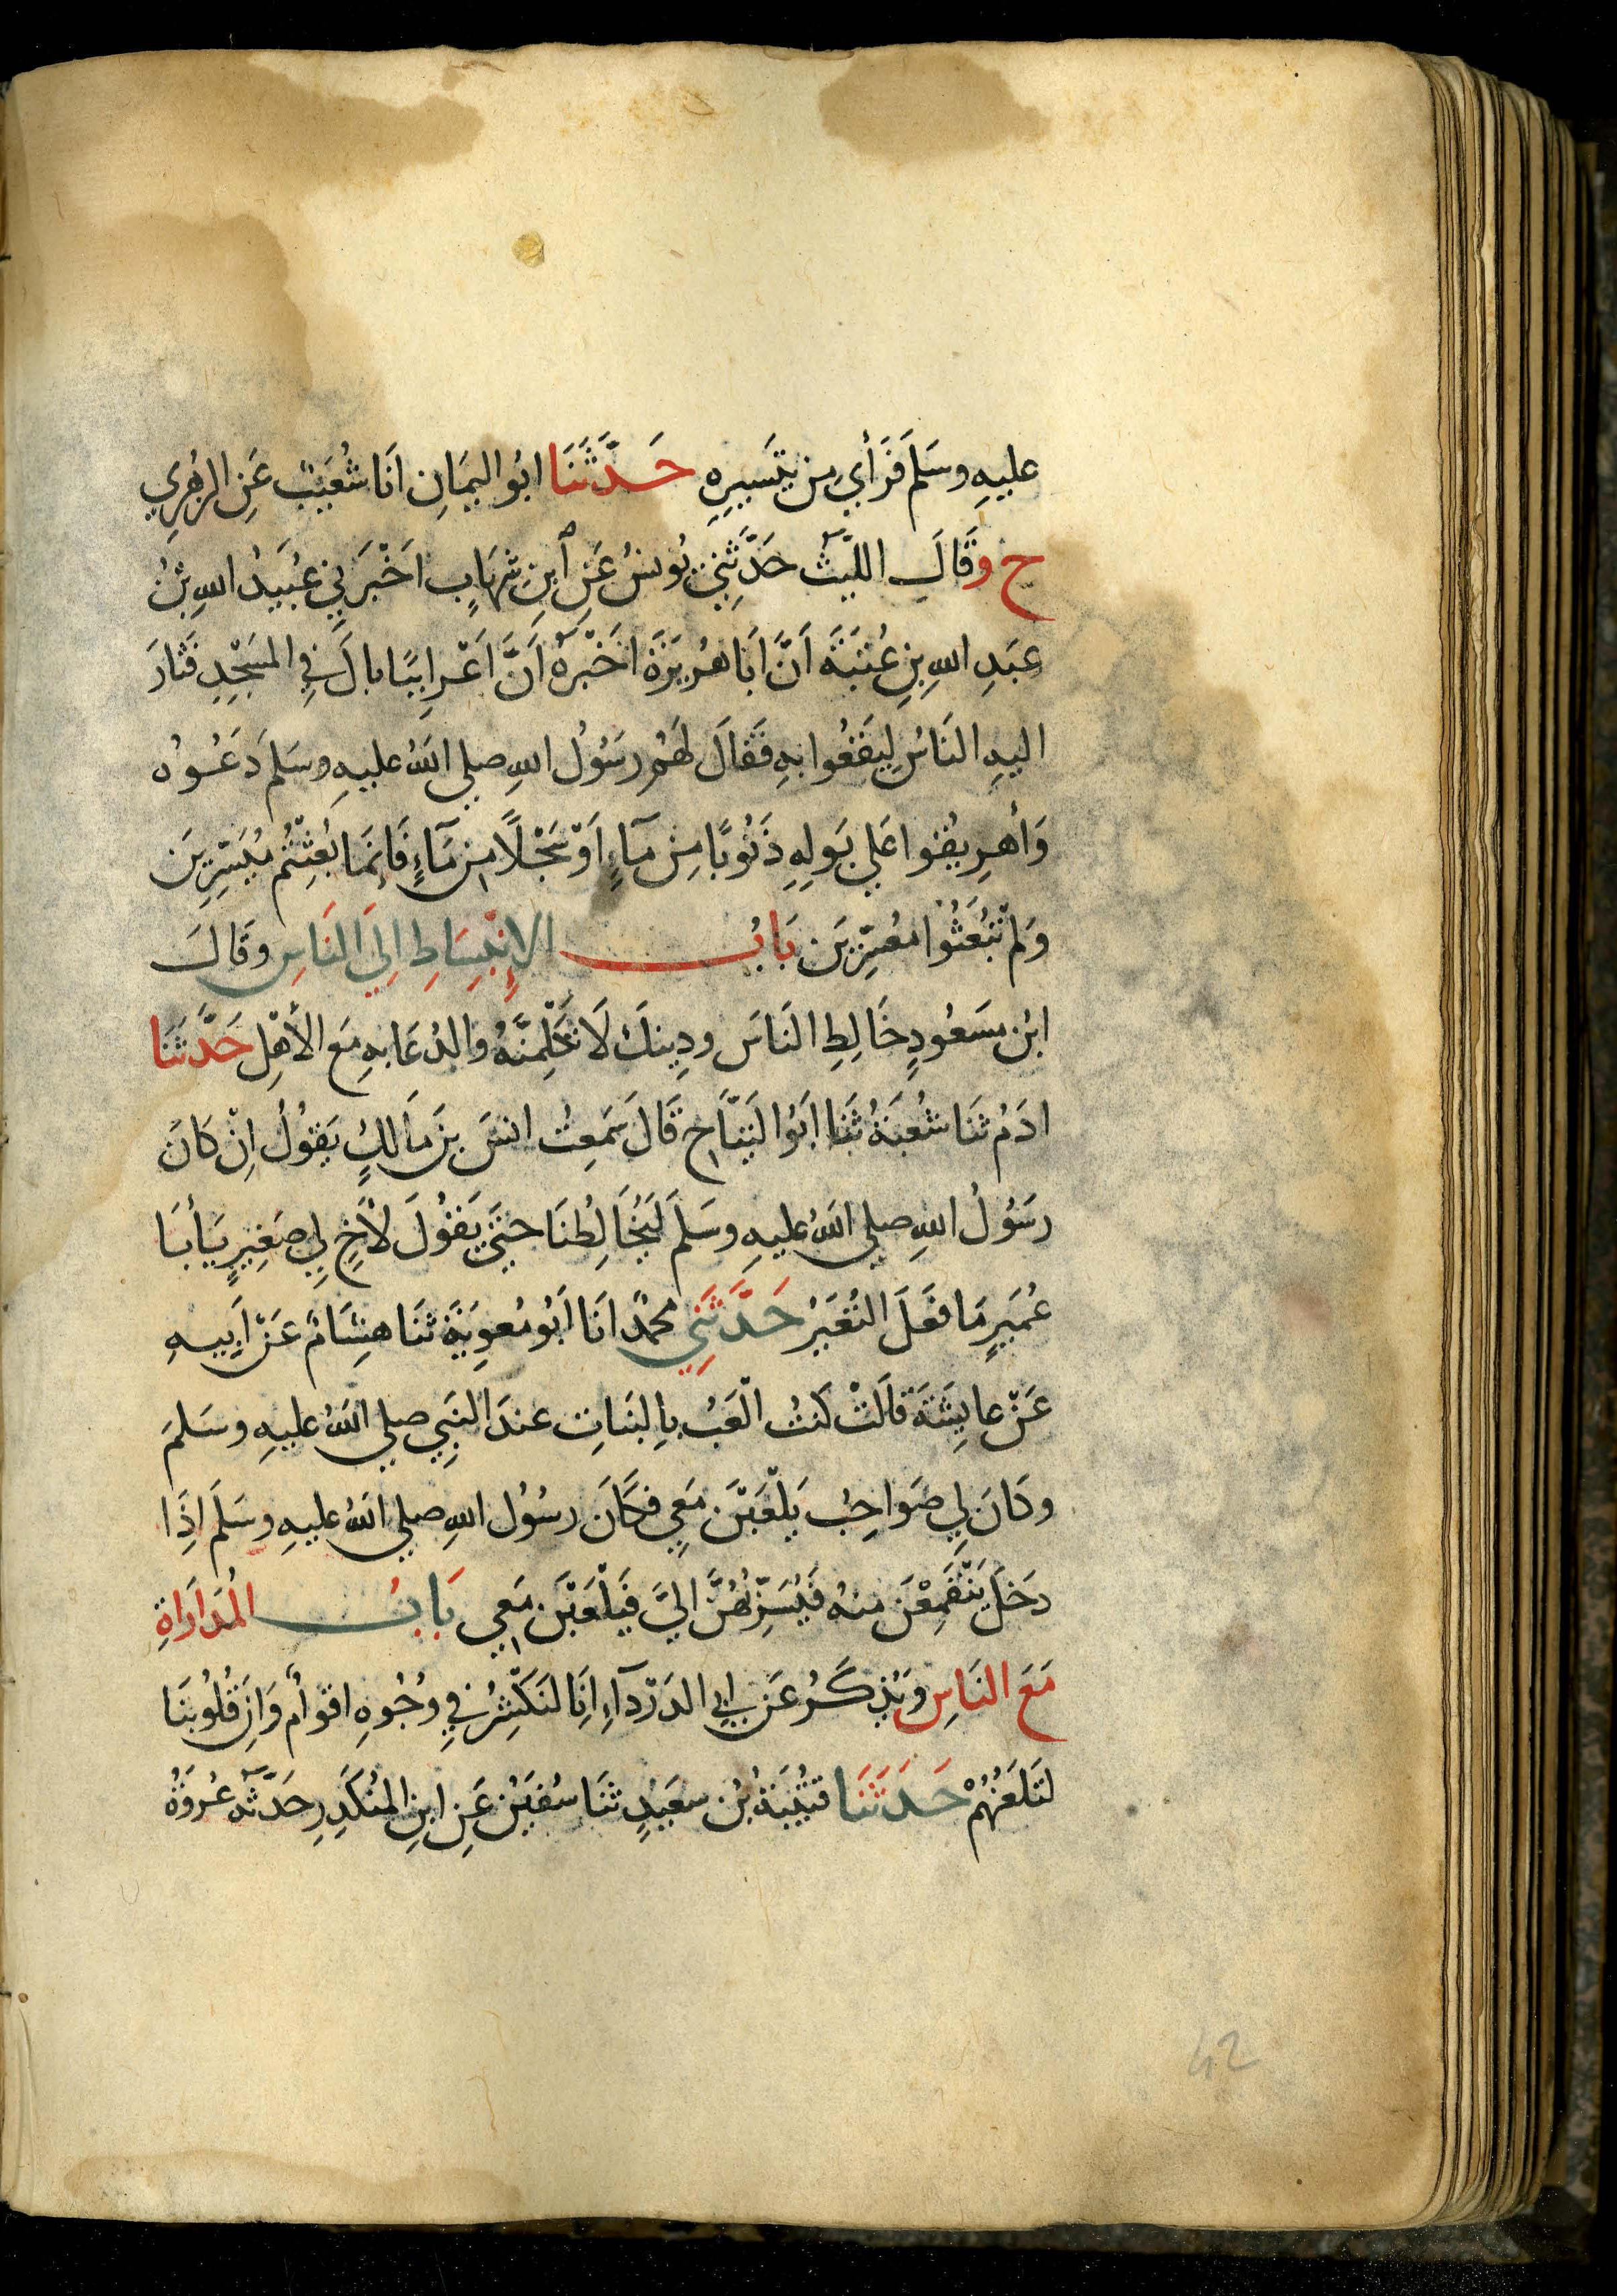 عليهِ وسَلمَ فَرَأي مِن تيَسيرِهِ حَدَّثَنَا ابُو اليمَانِ انَا شُعَيْبٌ عَنِ الزهرِي
ح وقَالَ الليْثُ حَدَّثَنِي يُونسُ عَنِ ابنِ شِهَابٍ اخْبَرَنِي عُبَيدُ اللهِ بْنُ
عبَدِ اللهِ بنِ عُتبَةَ اَنَّ ابَا هُرَيرَةَ اخَبْرَهُ اَنَّ اَعْرابِيًا بالَ فِي المَسْجِدِ فَثارَ
اليهِ النَاسُ لِيَقَعُوا بهِ فَقَالَ لهَمُ رسَوُلُ اللهِ صلي اللهُ عليهِ وسَلمَ دَعُوهُ
وَأهرِيقُوا عَلي بَولِهِ ذَنُوبًا مِن مآءٍ اَوْ سَجْلًا مِن مَآءٍ فَانِمَا بُعِثْتُم مُيَسِّرِينَ
وَلم تُبْعَثُوا مُعَسِّرِينَ بَابُ الاِنْبِسَاطِ الِيَ النَاسِ وقَالَ
ابْن مسَعُودٍ خَالِطِ النَاسَ ودِينكَ لَا تَكْلِمَنَّهُ والدُعَابهِ مَع الأهْلِ حَدَّثنَا
ادَمُ ثنَا شُعْبَةُ ثَنَا ابَوُ التَيّاحِ قَالَ سَمِعتُ انسَ بنَ مَالكٍ يَقوُلُ اِنْ كَانَ
رسَوُلُ اللهِ صلي اللهُ عليهِ وسَلمَ ليُخَالِطُنَا حتيَ يَقوُلَ لأخٍ لِي صَغِيرٍ يَأبَا
عُمَيرٍ مَا فعَلَ النُغَيرُ حَدَّثَنِي محمدٌ انَا ابَوُ مُعوِيَةَ ثنَا هِشَامٌ عَنْ اَبِيهِ
عَنْ عايِشَةَ قالَتْ كنتُ الْعَبُ بِالبَنَاتِ عندَ النبَيِ صلي اللهُ عليهِ وسَلمَ
وكانَ لِي صَوَاحِبُ يَلْعَبْنَ مَعِي فكَانَ رسُوُل اللهِ صلي اللهُ عليهِ وسَلمَ اذَا
دخَلَ يَنْقَمِعْنَ مِنهُ فَيُسَرِّبُهُنَّ الِيَّ فيَلْعَبْنَ مَعِي بَابُ المُدَارَاةِ
مَعَ النَاسِ وَيُذكَرُ عَن ابِي الدَرْدَآءِ انَا لنَكْشِرُ في وُجُوهِ اقوامٍ وَانِ قُلُوبَنَا
لتَلعَنُهُمْ حَدَثنَا قتيُبَةُ بْن سعَيدٍ ثنَا سُفيَنُ عَنِ ابنِ المُنكَدِرِ حَدَّثَهُ عُروَةُ
42